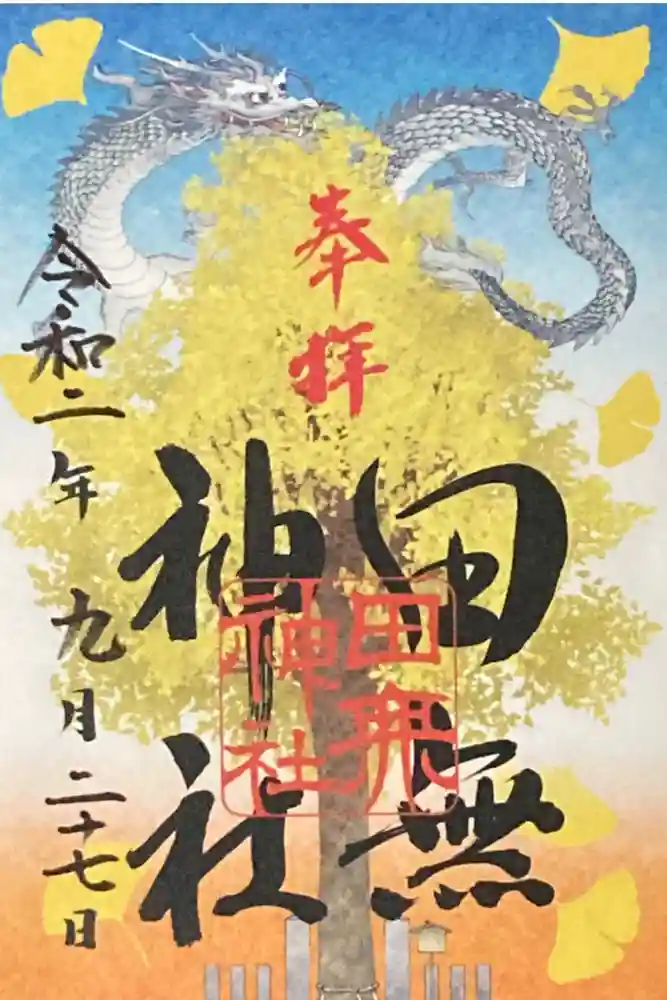 奉拝
田無
神社
田無
神社
令和二年九月二十七日